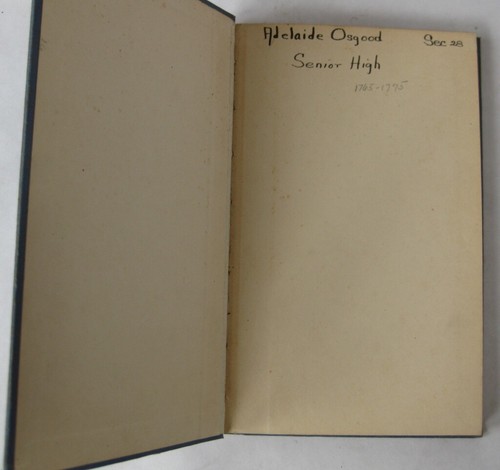 Adelaide Osgood Sec 28
Senior High
1765-1795